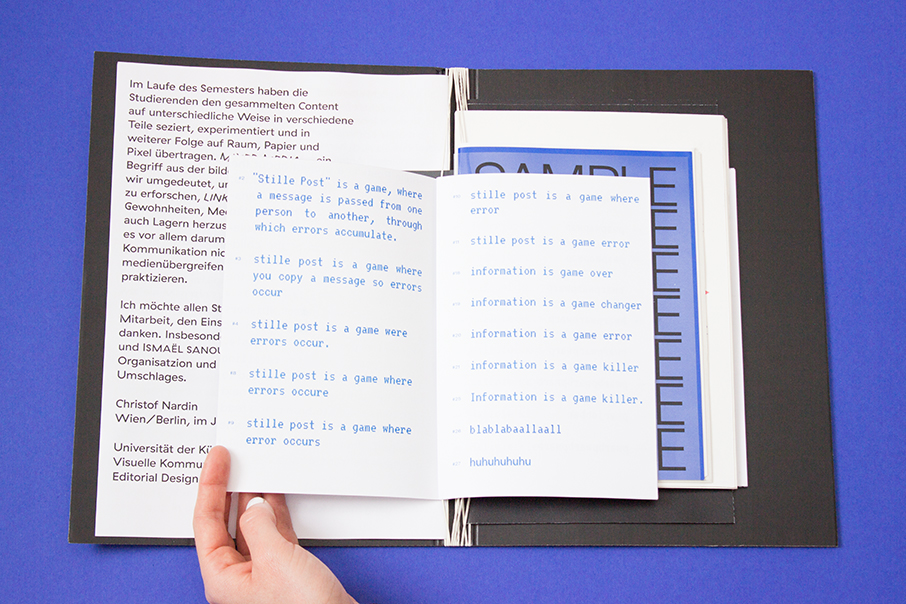 Im Laufe des Semesters haben die
Studierenden den gesammelten Content
auf unterschiedliche Weise in verschiedene
Teile seziert, experimentiert und in
weiterer Folge auf Raum, Papier und
Pixel übertragen. ein
Begriff aus der
wir umgedeutet,
zu erforschen,
Gewohnheiten,
auch Lagern
es vor allem darum
Kommunikation
medienübergreifen
praktizieren.
Ich möchte allen
Mitarbeit, den
danken.
und ISMAËL
Organisatzion und
Umschlages.
Christof Nardin
Wien/Berlin, im J
Universität der
Visuelle
Editorial Design
"Stille Post" is a game, where
a message is passed from one
person to another, through
which errors accumulate.
stille post is a game where
you copy a message so errors
occur
stille post is a game were
errors occur.
stille post is a game where
errors occure
stille post is a game where
error occurs
stille post is a game where
error
stille post is a game error
information is game over
information is a game changer
information is a game error
information is a game killer
Information is a game killer.
blablabaallaall
huhuhuhuhu
SAMPLE